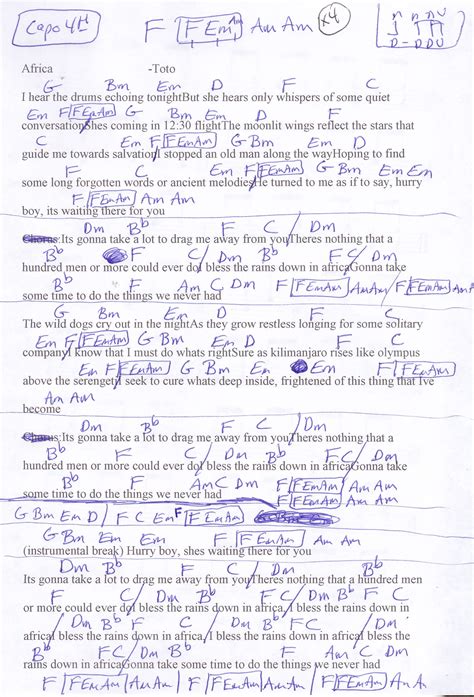 Capo 4th F F Em Am Am Am x4 D-DDU
Africa -Toto
G Bm Em D F C
I hear the drums echoing tonightBut she hears only whispers of some quiet
Em F F Em Am G Bm Em D
conversationShes coming in 12:30 flightThe moonlit wings reflect the stars that
F C Em F F Em Am G Bm Em
guide me towards salvationI stopped an old man along the wayHoping to find
D F C Em F F Em Am G Bm Em Em
some long forgotten words or ancient melodiesHe turned to me as if to say, hurry
F F Em Am Am Am
boy, its waiting there for you
Dm Bb F C / Dm
:Its gonna take a lot to drag me away from youTheres nothing that a
Bb F C / Dm Bb F C / Dm
hundred men or more could ever doI bless the rains down in africaGonna take
Bb F Am C Dm F F Em Am Am Am / F F Em Am Am
some time to do the things we never had
G Bm Em D F
The wild dogs cry out in the nightAs they grow restless longing for some solitary
C Em F F Em Am G Bm Em D F C
companyI know that I must do whats rightSure as kilimanjaro rises like olympus
Em F F Em Am G Bm Em Em F F Em Am
above the serengetiI seek to cure whats deep inside, frightened of this thing that Ive
Am Am
become
Dm Bb F C / Dm
:Its gonna take a lot to drag me away from youTheres nothing that a
Bb F C / Dm Bb F C / Dm
hundred men or more could ever doI bless the rains down in africaGonna take
Bb F Am C Dm F F Em Am Am Am
some time to do the things we never had F F Em Am Am Am
G Bm Em D / F C Em F F Em Am
G Bm Em Em F F Em Am Am Am
(instrumental break) Hurry boy, shes waiting there for you
Dm Bb F C / Dm Bb
Its gonna take a lot to drag me away from youTheres nothing that a hundred men
F C / Dm Bb F C / Dm Bb F C
or more could ever doI bless the rains down in africa,I bless the rains down in
/ Dm Bb F C / Dm Bb F C / Dm
africaI bless the rains down in africa,I bless the rains down in africaI bless the
Bb F C / Dm Bb F Am C Dm
rains down in africaGonna take some time to do the things we never had
F F Em Am Am Am / F F Em Am Am Am / F F Em Am Am A